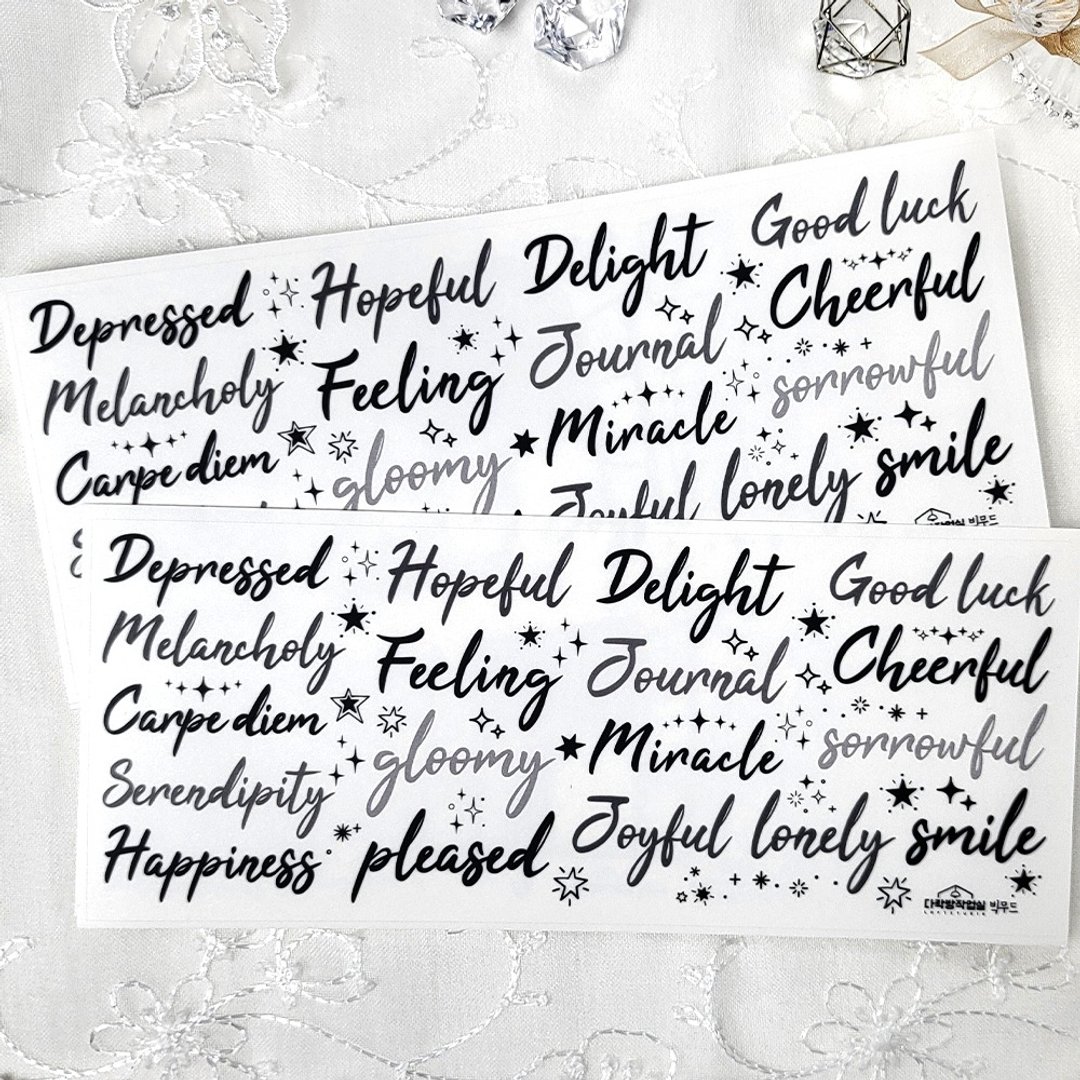 Depressed Hopeful Delight Good luck
Melancholy Feeling Journal Cheerful
Carpe diem gloomy Miracle sorrowful
Joyful lonely smile
Depressed Hopeful Delight Good luck
Melancholy Feeling Journal Cheerful
Carpe diem gloomy Miracle sorrowful
Serendipity
Happiness pleased Joyful lonely smile
다락방작업실 빅무드